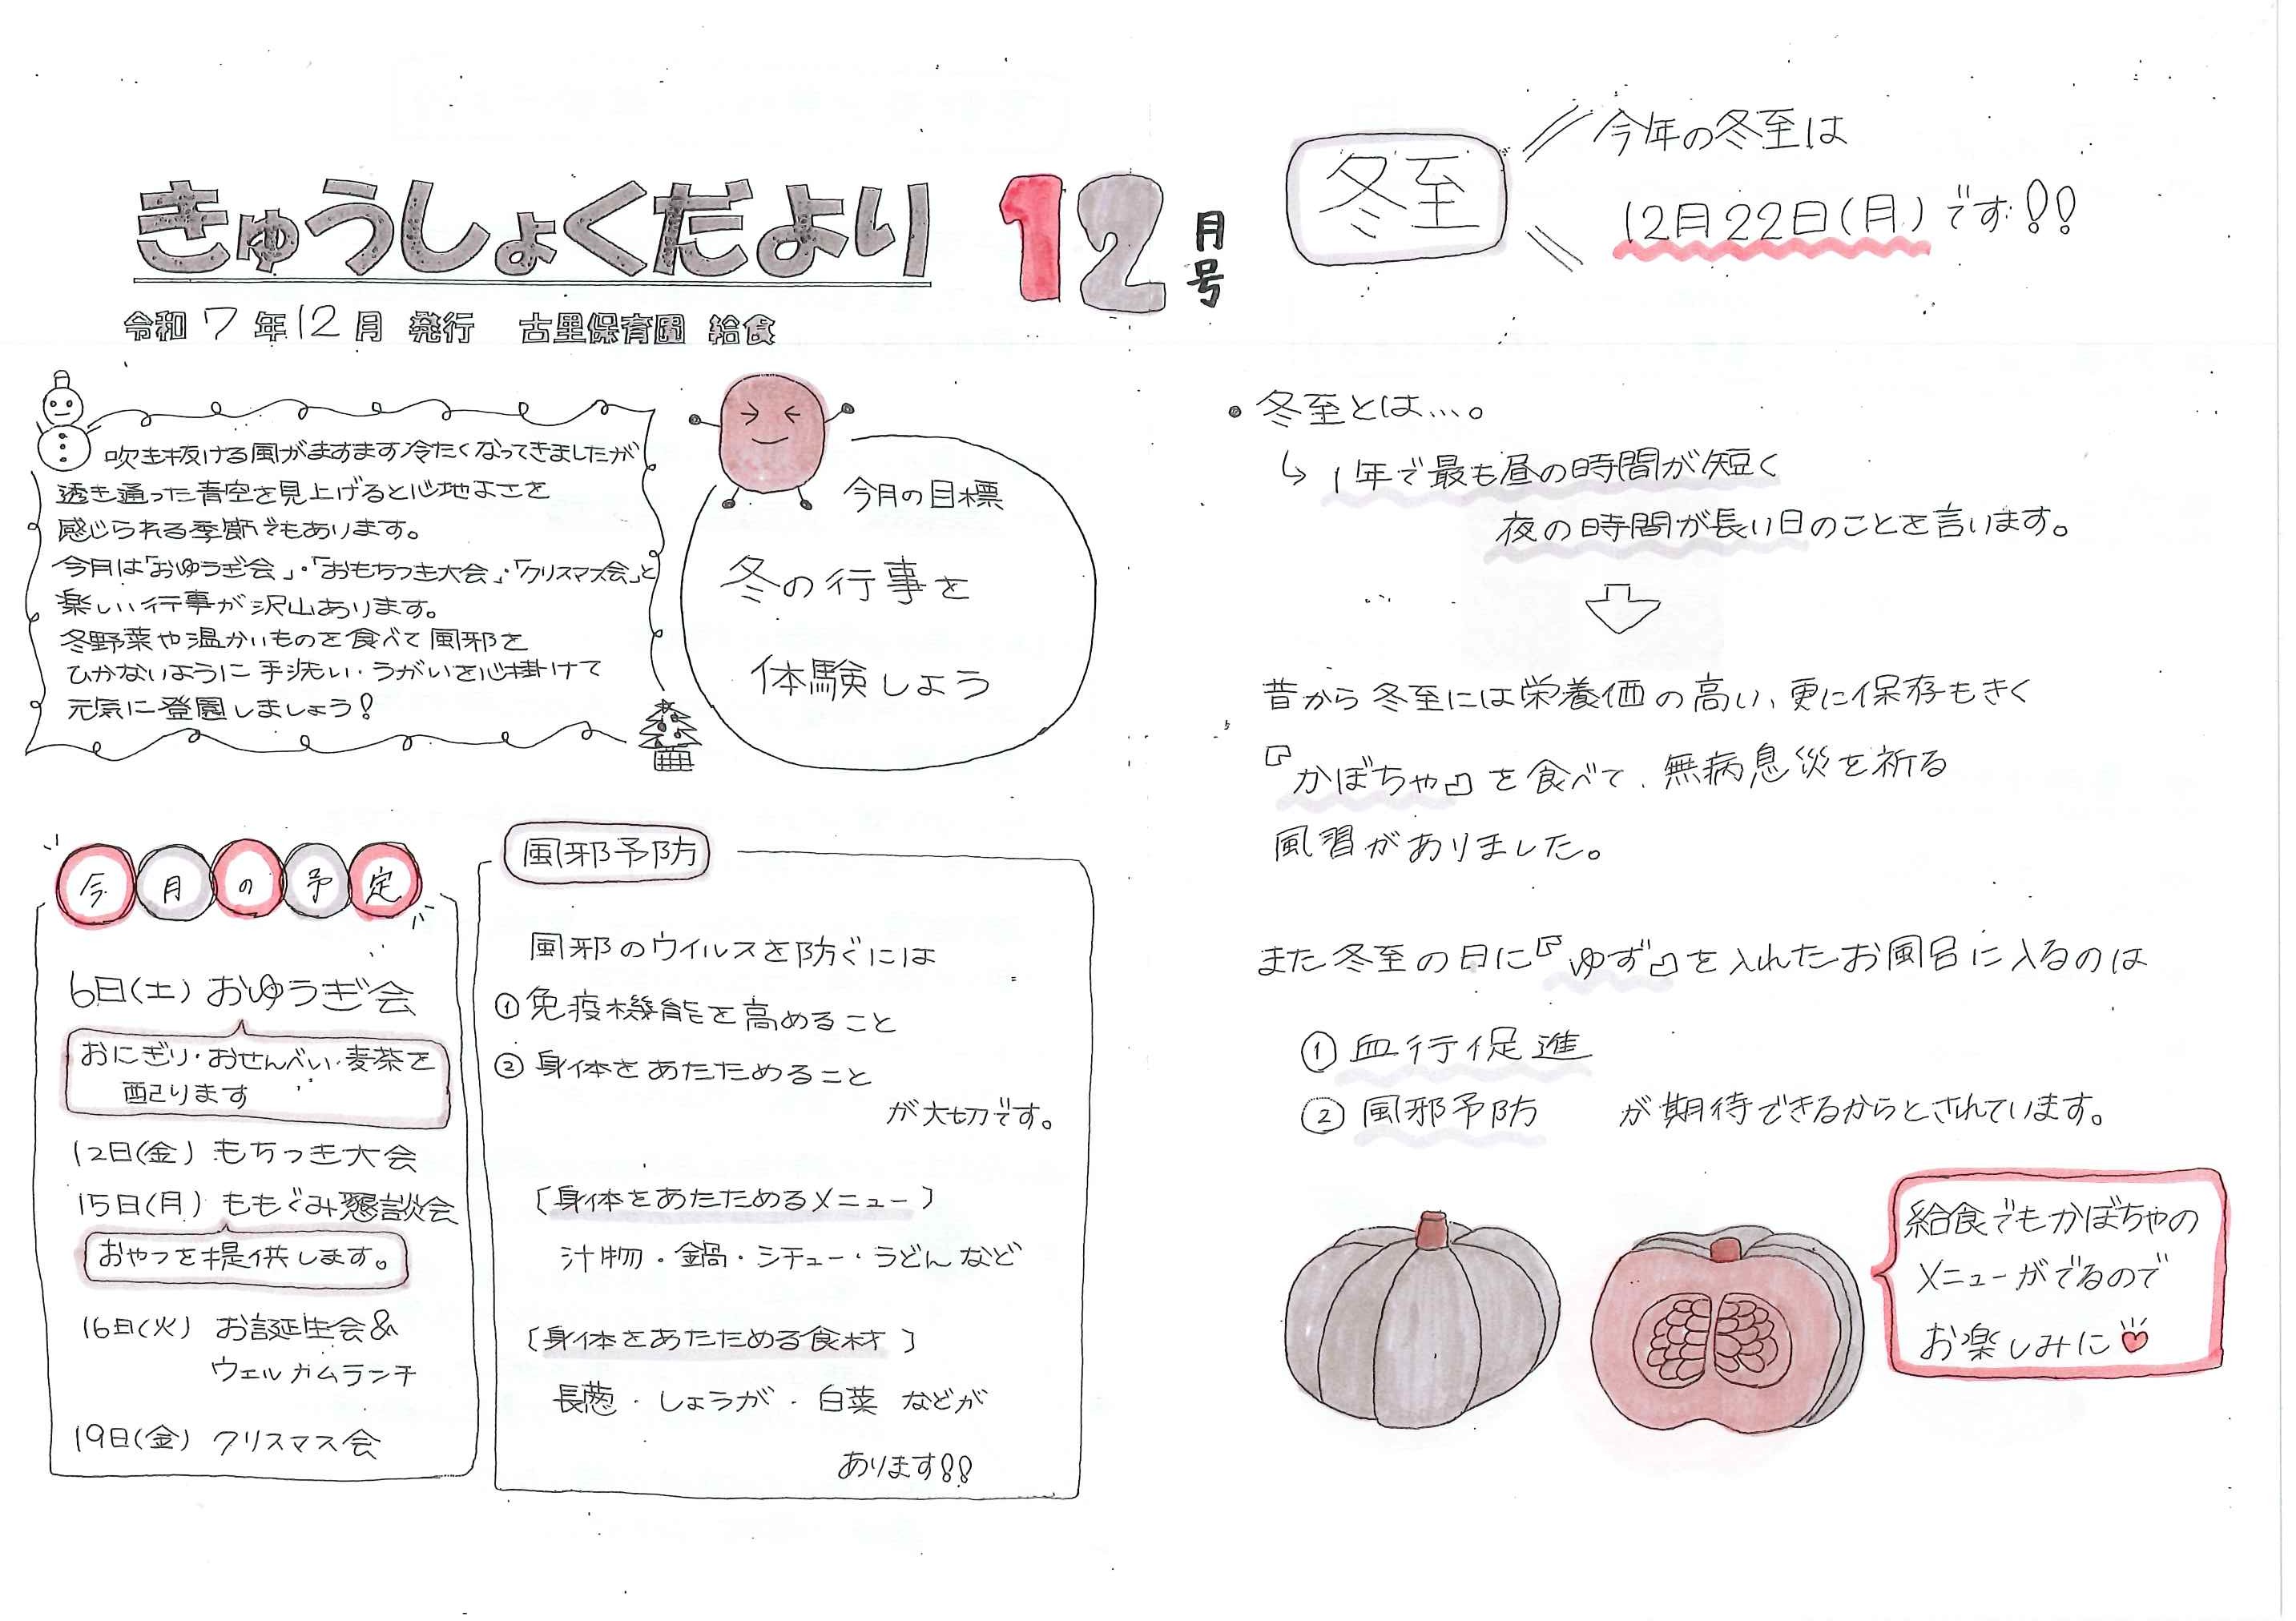 きゅうしょくだより 12月号
令和7年12月 発行 古里保育園 給食
吹き抜ける風がますます冷たくなってきましたが
透き通った青空を見上げると心地よさを
感じられる季節でもあります。
今月は「おゆうぎ会」・「おもちつき大会」・「クリスマス会」と
楽しい行事が沢山あります。
冬野菜や温かいものを食べて風邪を
ひかないように手洗い・うがいを心掛けて
元気に登園しましょう!
今月の目標
冬の行事を
体験しよう
今月の予定
6日(土) おゆうぎ会
おにぎり・おせんべい・麦茶を
配ります
12日(金) もちつき大会
15日(月) ももぐみ懇談会
おやつを提供します。
16日(火) お誕生会&
ウェルカムランチ
19日(金) クリスマス会
風邪予防
風邪のウイルスを防ぐには
① 免疫機能を高めること
② 身体をあたためること
が大切です。
〔身体をあたためるメニュー〕
汁物・鍋・シチュー・うどんなど
〔身体をあたためる食材〕
長葱・しょうが・白菜 などが
あります!!
冬至
今年の冬至は
12月22日(月)です!!
・冬至とは…。
↳ 1年で最も昼の時間が短く
夜の時間が長い日のことを言います。
昔から冬至には栄養価の高い、更に保存もきく
『かぼちゃ』を食べて、無病息災を祈る
風習がありました。
また冬至の日に『ゆず』を入れたお風呂に入るのは
① 血行促進
② 風邪予防 が期待できるからとされています。
給食でもかぼちゃの
メニューがでるので
お楽しみに♡